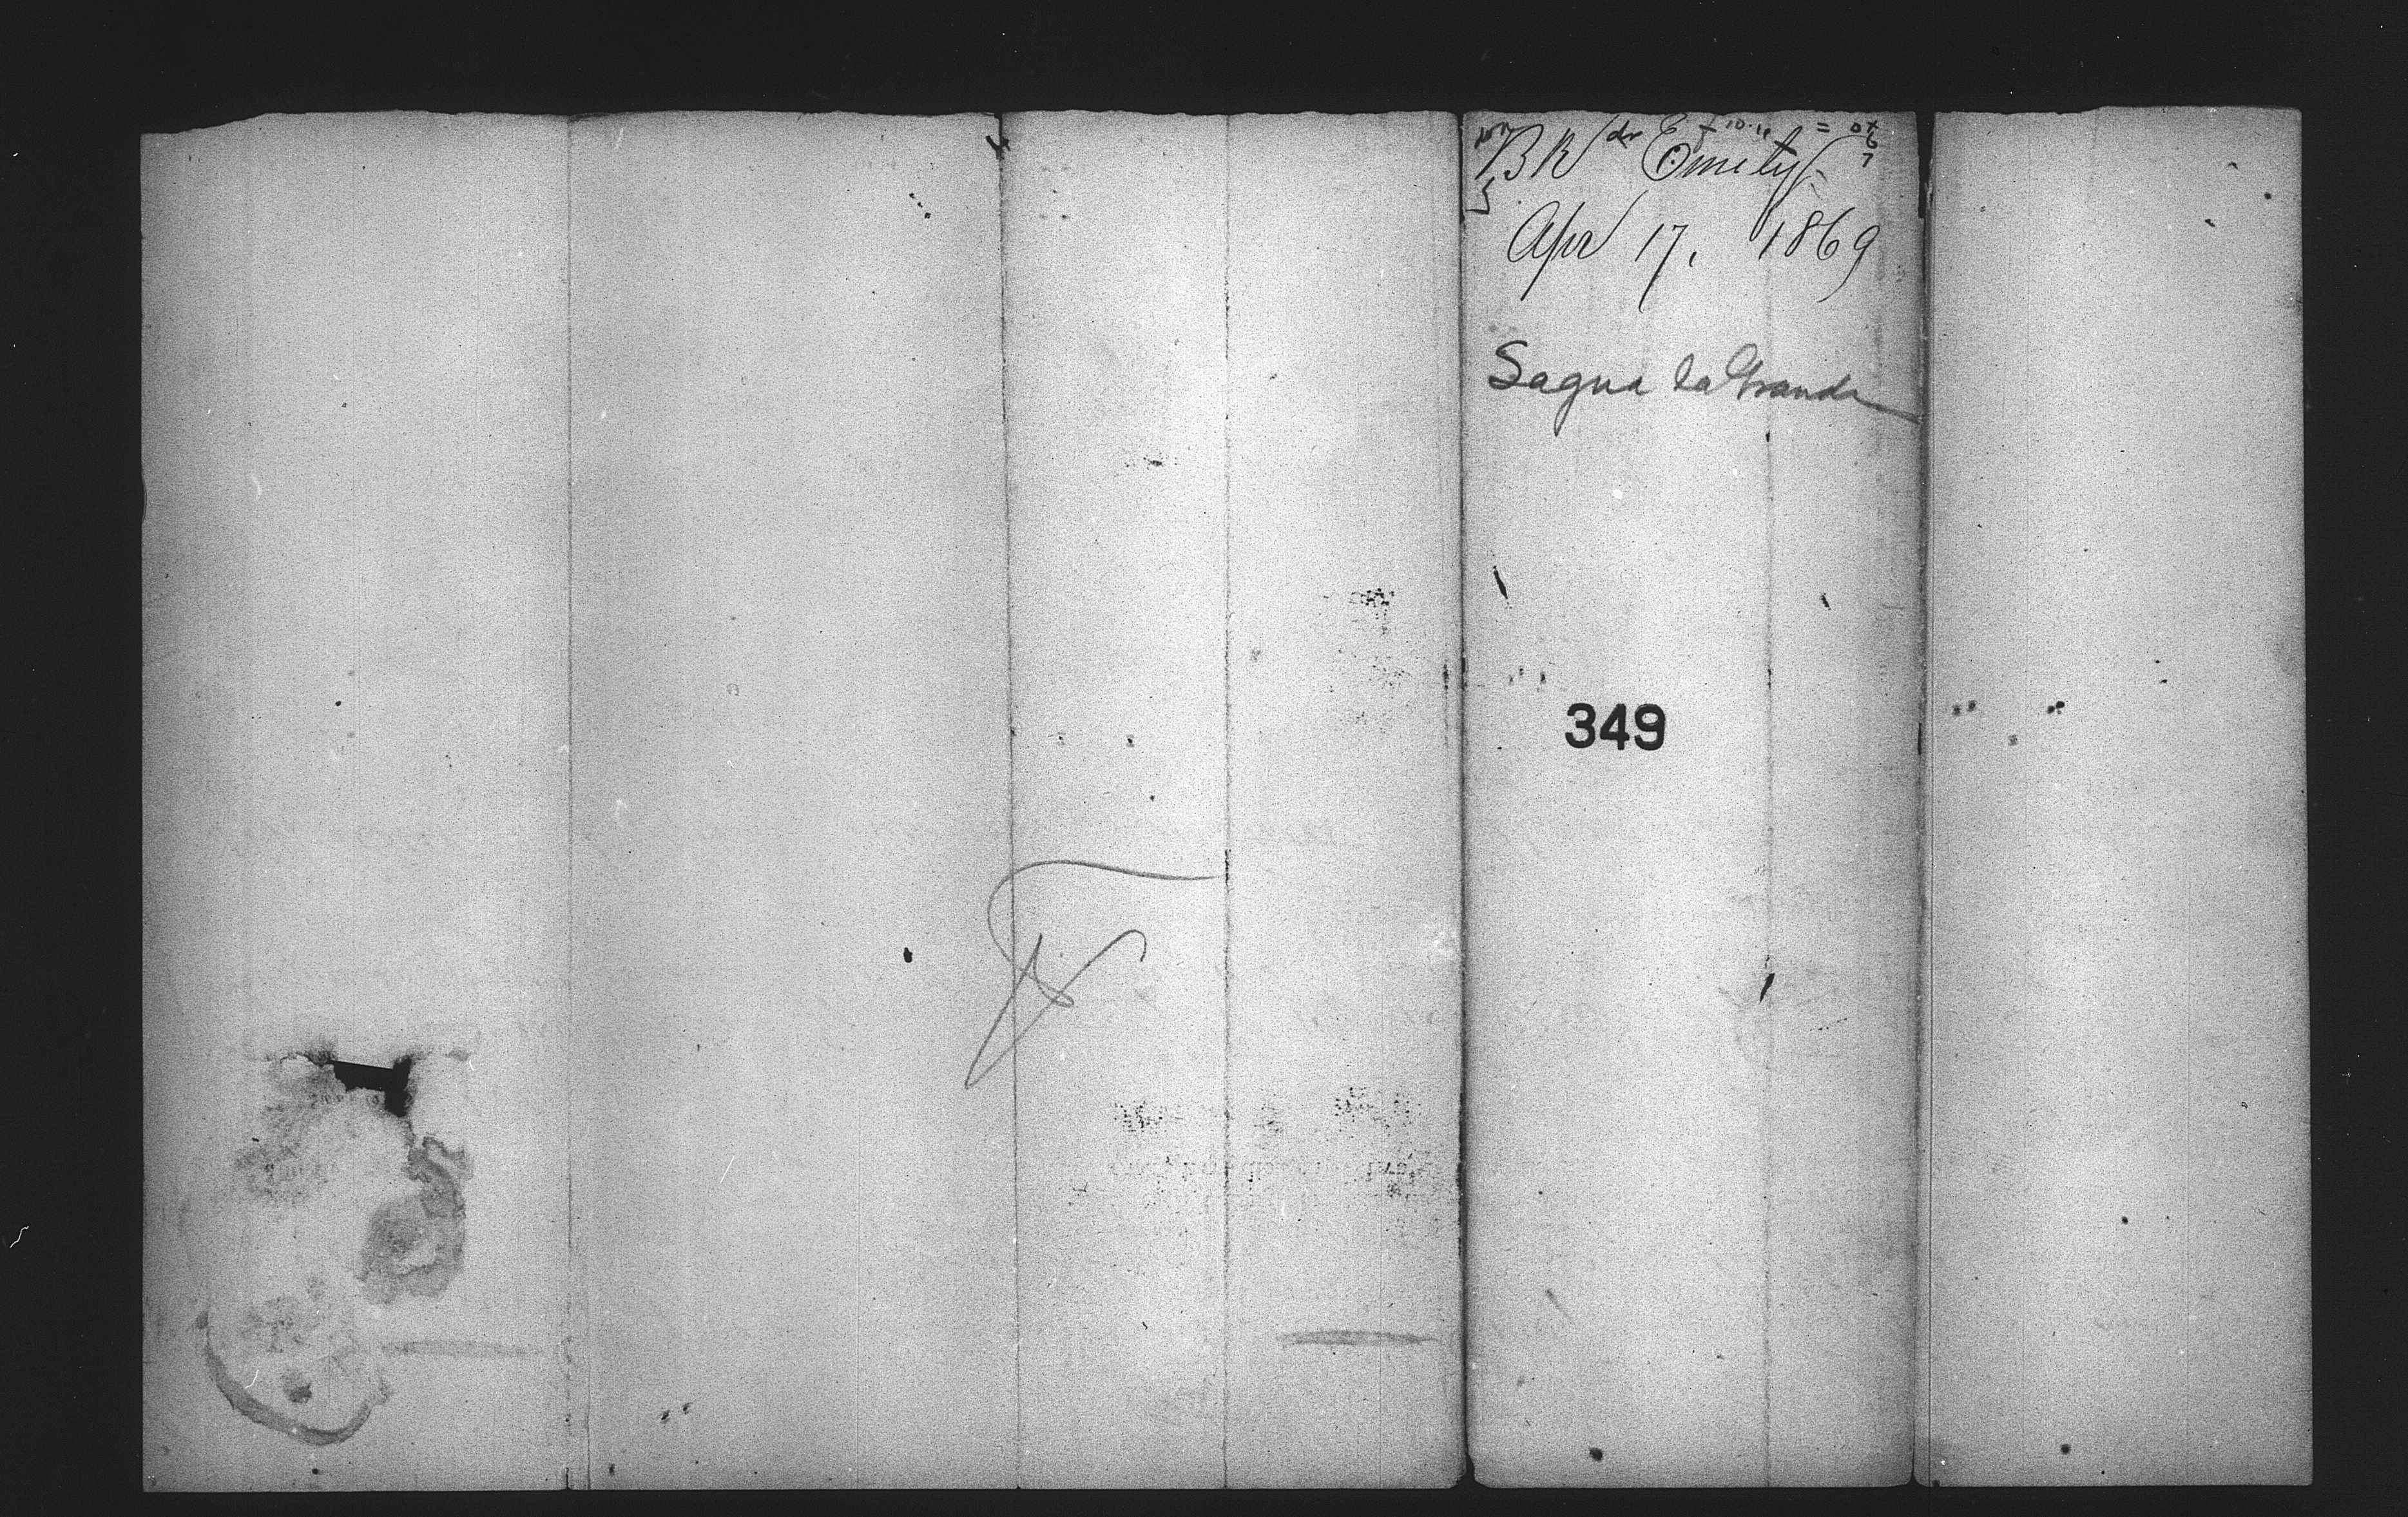 BK Emily
Apr 17, 1869
Sagua la Grande
349